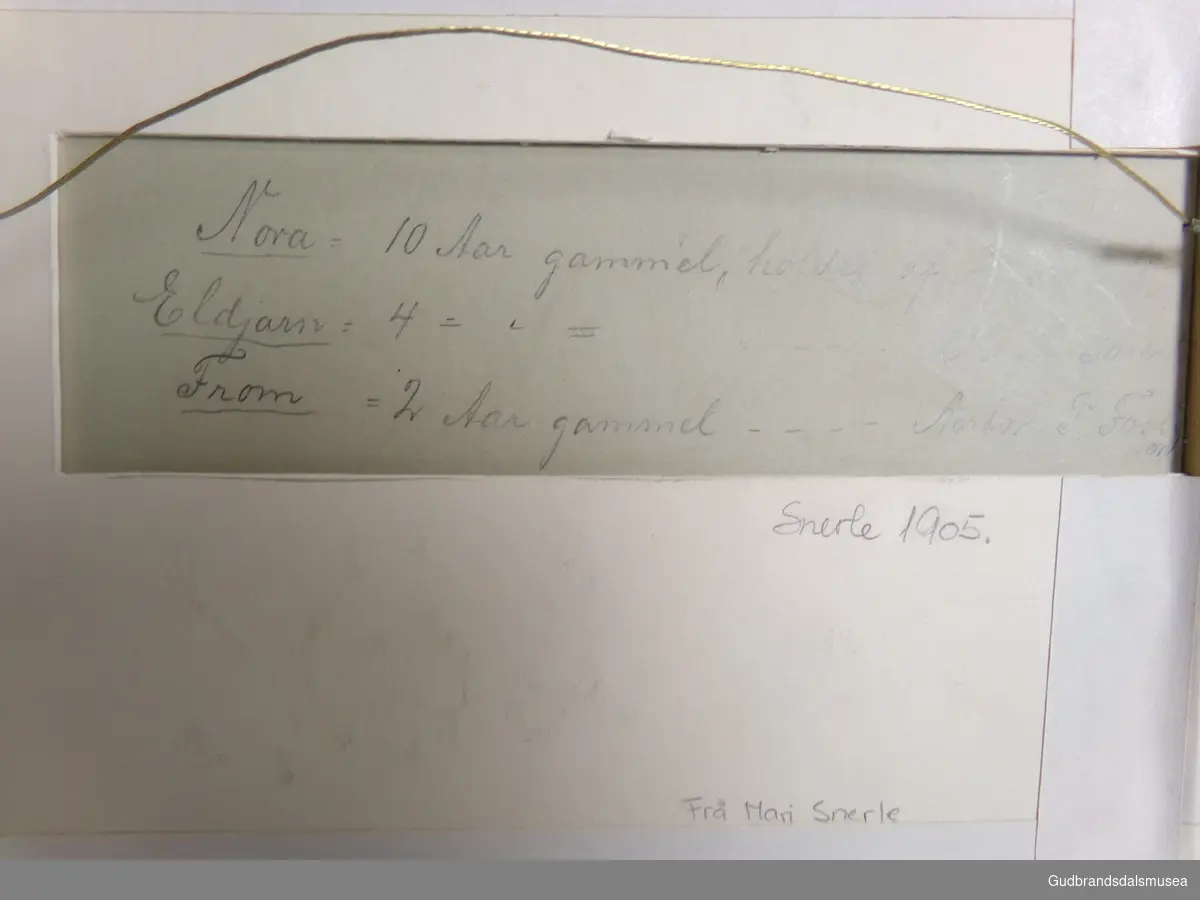 Nora = 10 Aar gammel, holdes af
Eldjarn = 4 = " =
From = 2 Aar gammel - - - -
Snerle 1905.
Frå Mari Snerle
Gudbrandsdalsmusea